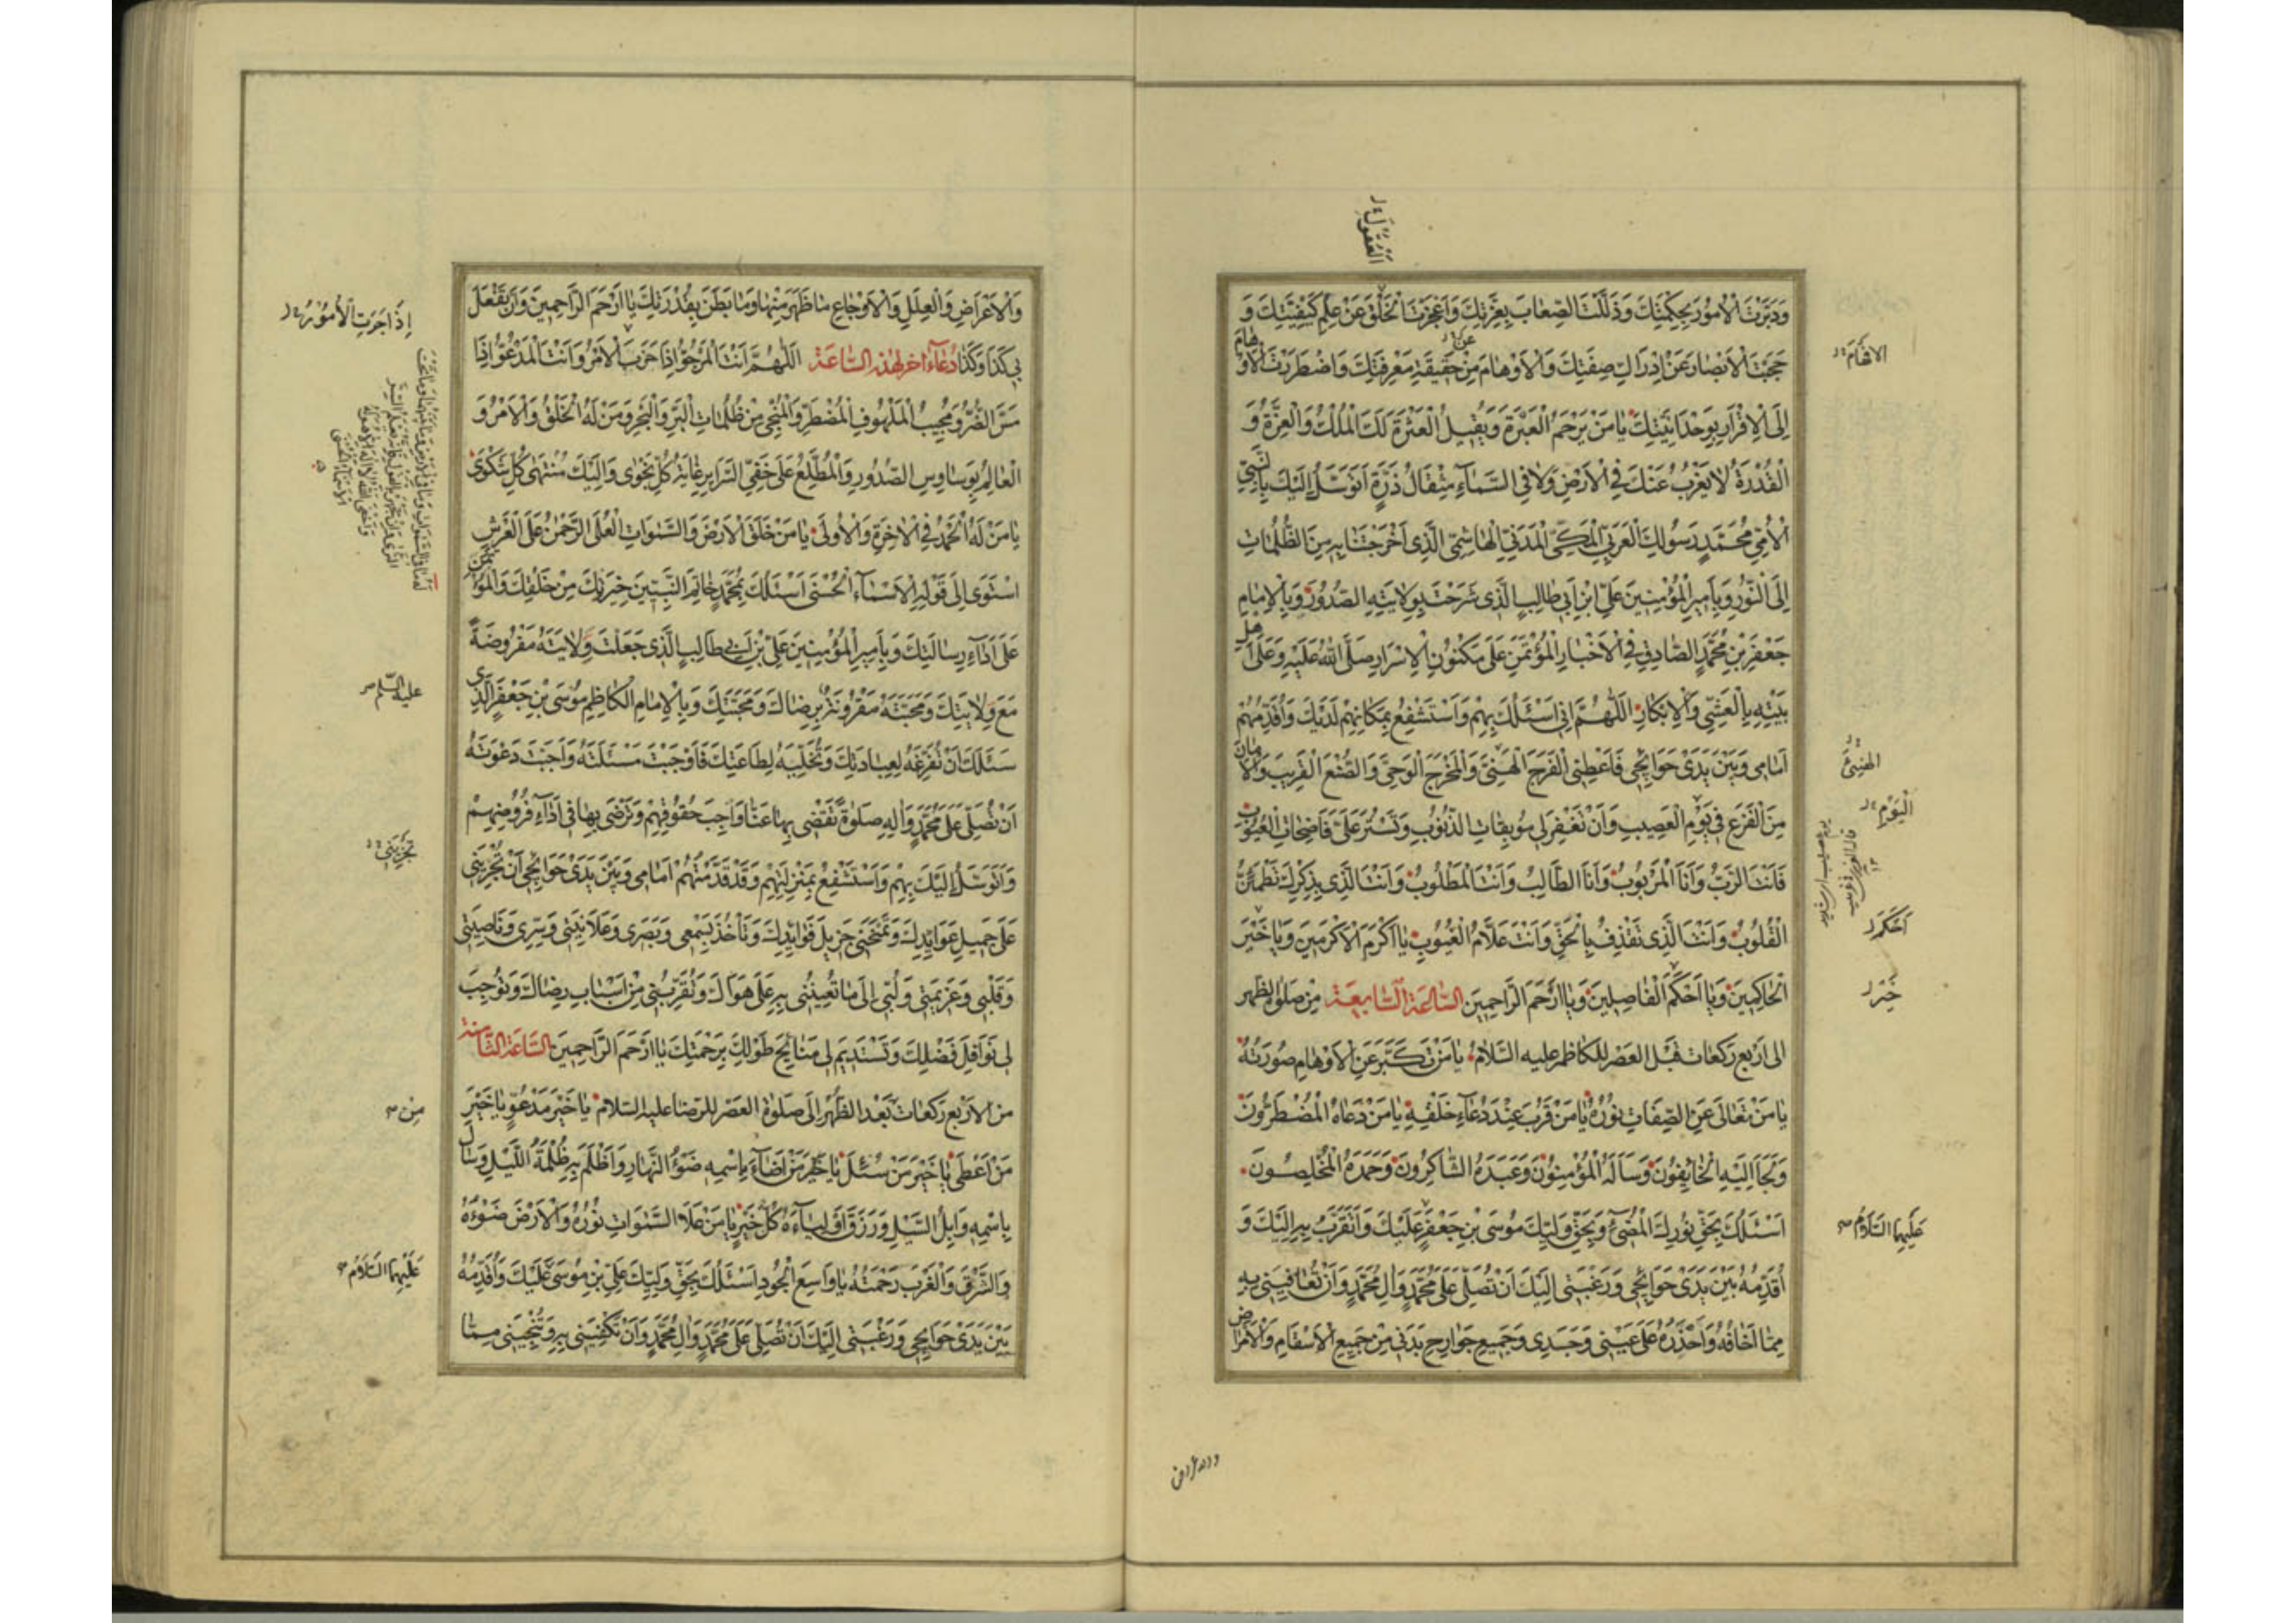 العقول
وَدَبَّرْتَ الْأُمُورَ بِحِكْمَتِكَ وَذَلَّلْتَ الصِّعَابَ بِعِزَّتِكَ وَأَعْجَزْتَ الْخَلْقَ عَنْ عِلْمِ كَيْفِيَّتِكَ وَ
حَجَبْتَ الْأَبْصَارَ عَنْ إِدْرَاكِ صِفَتِكَ وَالْأَوْهَامَ مِنْ عن حَقِيقَةِ مَعْرِفَتِكَ وَاضْطَرَرْتَ الْأَوْهَامَ
الافهام
إِلَى الْإِقْرَارِ بِوَحْدَانِيَّتِكَ يَا مَنْ يَرْحَمُ الْعَبْرَةَ وَيُقِيلُ الْعَثْرَةَ لَكَ الْمُلْكُ وَالْعِزَّةُ وَ
الْقُدْرَةُ لَا يَعْزُبُ عَنْكَ فِي الْأَرْضِ وَلَا فِي السَّمَاءِ مِثْقَالُ ذَرَّةٍ أَتَوَسَّلُ إِلَيْكَ بِالنَّبِيِّ
الْأُمِّيِّ مُحَمَّدٍ رَسُولِكَ الْعَرَبِيِّ الْمَكِّيِّ الْمَدَنِيِّ الْهَاشِمِيِّ الَّذِي أَخْرَجْتَنَا بِهِ مِنَ الظُّلُمَاتِ
إِلَى النُّورِ وَبِأَمِيرِ الْمُؤْمِنِينَ عَلِيِّ ابْنِ أَبِي طَالِبٍ الَّذِي شَرَحْتَ بِوِلَايَتِهِ الصُّدُورَ وَبِالْإِمَامِ
جَعْفَرِ بْنِ مُحَمَّدٍ الصَّادِقِ فِي الْأَخْبَارِ الْمُؤْتَمَنِ عَلَى مَكْنُونِ الْأَسْرَارِ صَلَّى اللَّهُ عَلَيْهِ وَعَلَى أَهْلِ
بَيْتِهِ بِالْعَشِيِّ وَالْإِبْكَارِ اللَّهُمَّ إِنِّي أَسْئَلُكَ بِهِمْ وَأَسْتَشْفِعُ بِمَكَانِهِمْ لَدَيْكَ وَأُقَدِّمُهُمْ
أَمَامِي وَبَيْنَ يَدَيْ حَوَائِجِي فَأَعْطِنِي الْفَرَجَ الْهَنِيَّ وَالْمَخْرَجَ الْوَحِيَّ وَالصُّنْعَ الْقَرِيبَ وَالْأَمَانَ
الهنيئ
مِنَ الْفَزَعِ فِي يَوْمِ الْعَصِيبِ وَأَنْ تَغْفِرَ لِي مُوبِقَاتِ الذُّنُوبِ وَتَسْتُرَ عَلَيَّ فَاضِحَاتِ الْعُيُوبِ
اليوم
فَأَنْتَ الرَّبُّ وَأَنَا الْمَرْبُوبُ وَأَنَا الطَّالِبُ وَأَنْتَ الْمَطْلُوبُ وَأَنْتَ الَّذِي بِذِكْرِكَ تَطْمَئِنُّ
الْقُلُوبُ وَأَنْتَ الَّذِي تَقْذِفُ بِالْحَقِّ وَأَنْتَ عَلَّامُ الْغُيُوبِ يَا أَكْرَمَ الْأَكْرَمِينَ وَيَا خَيْرَ
احكم
الْحَاكِمِينَ وَيَا أَحْكَمَ الْفَاصِلِينَ وَيَا أَرْحَمَ الرَّاحِمِينَ السَّاعَةُ السَّابِعَةُ مِنْ صَلَوةِ الظهر
خير
الى اَرْبَعِ رَكَعَاتٍ قَبْلَ العَصْرِ للكاظم عليه السَّلَامُ يَا مَنْ تَكَبَّرَ عَنِ الْأَوْهَامِ صُورَتُهُ
يَا مَنْ تَعَالَى عَنِ الصِّفَاتِ نُورُهُ يَا مَنْ قَرُبَ عِنْدَ دُعَاءِ خَلْقِهِ يَا مَنْ دَعَاهُ الْمُضْطَرُّونَ
وَلَجَأَ إِلَيْهِ الْخَائِفُونَ وَسَأَلَهُ الْمُؤْمِنُونَ وَعَبَدَهُ الشَّاكِرُونَ وَحَمِدَهُ الْمُخْلِصُونَ
أَسْئَلُكَ بِحَقِّ نُورِكَ الْمُضِيءِ وَبِحَقِّ وَلِيِّكَ مُوسَى بْنِ جَعْفَرٍ عَلَيْكَ وَأَتَقَرَّبُ بِهِ إِلَيْكَ وَ
عَلَيْهِمَا السَّلَامُ
أُقَدِّمُهُ بَيْنَ يَدَيْ حَوَائِجِي وَرَغْبَتِي إِلَيْكَ أَنْ تُصَلِّيَ عَلَى مُحَمَّدٍ وَآلِ مُحَمَّدٍ وَأَنْ تُعَافِيَنِي بِهِ
مِمَّا أَخَافُهُ وَأَحْذَرُهُ عَلَى عَيْنِي وَجَسَدِي وَجَمِيعِ جَوَارِحِ بَدَنِي مِنْ جَمِيعِ الْأَسْقَامِ وَالْأَمْرَاضِ
وَالْأَعْرَاضِ وَالْعِلَلِ وَالْأَوْجَاعِ مَا ظَهَرَ مِنْهَا وَمَا بَطَنَ بِقُدْرَتِكَ يَا أَرْحَمَ الرَّاحِمِينَ وَأَنْ تَفْعَلَ
بِي كَذَا وَكَذَا دُعَاءٌ اخر لهذه السَّاعَةِ اللَّهُمَّ أَنْتَ الْمَرْجُوُّ إِذَا حَزَبَ الْأَمْرُ وَأَنْتَ الْمَدْعُوُّ إِذَا
إِذَا جَرَتِ الْأُمُورُ
مَسَّ الضُّرُّ وَمُجِيبُ الْمَلْهُوفِ الْمُضْطَرِّ وَالْمُنْجِي مِنْ ظُلُمَاتِ الْبَرِّ وَالْبَحْرِ وَمَنْ لَهُ الْخَلْقُ وَالْأَمْرُ وَ
الْعَالِمُ بِوَسَاوِسِ الصُّدُورِ وَالْمُطَّلِعُ عَلَى خَفِيِّ السَّرَايِرِ غَايَةُ كُلِّ نَجْوَى وَإِلَيْكَ مُنْتَهَى كُلِّ شَكْوَى
يَا مَنْ لَهُ الْحَمْدُ فِي الْآخِرَةِ وَالْأُولَى يَا مَنْ خَلَقَ الْأَرْضَ وَالسَّمَوَاتِ الْعُلَى الرَّحْمَنُ عَلَى الْعَرْشِ
اسْتَوَى إِلَى قَوْلِهِ الْأَسْمَاءُ الْحُسْنَى أَسْئَلُكَ بِمُحَمَّدٍ خَاتَمِ النَّبِيِّينَ خِيَرَتِكَ مِنْ خَلْقِكَ وَالْمُؤْتَمَنِ
لَهُ مَا فِي السَّمَوَاتِ وَمَا فِي الْأَرْضِ وَمَا بَيْنَهُمَا وَمَا تَحْتَ
الثَّرَى وَإِنْ تَجْهَرْ بِالْقَوْلِ فَإِنَّهُ يَعْلَمُ السِّرَّ
وَأَخْفَى اللَّهُ لَا إِلَهَ إِلَّا هُوَ لَهُ
الْأَسْمَاءُ الْحُسْنَى
عَلَى أَدَاءِ رِسَالَتِكَ وَبِأَمِيرِ الْمُؤْمِنِينَ عَلِيِّ بْنِ أَبِي طَالِبٍ الَّذِي جَعَلْتَ وِلَايَتَهُ مَفْرُوضَةً
مَعَ وِلَايَتِكَ وَمَحَبَّتَهُ مَقْرُونَةً بِرِضَاكَ وَمَحَبَّتِكَ وَبِالْإِمَامِ الْكَاظِمِ مُوسَى بْنِ جَعْفَرٍ الَّذِي
عليه السّلم
سَئَلَكَ أَنْ تُفَرِّغَهُ لِعِبَادَتِكَ وَتُخَلِّيَهُ لِطَاعَتِكَ فَأَوْجَبْتَ مَسْئَلَتَهُ وَأَجَبْتَ دَعْوَتَهُ
أَنْ تُصَلِّيَ عَلَى مُحَمَّدٍ وَآلِهِ صَلَوةً تَقْضِي بِهَا عَنَّا وَاجِبَ حُقُوقِهِمْ وَتَرْضَى بِهَا فِي أَدَاءِ فُرُوضِهِمْ
وَأَتَوَسَّلُ إِلَيْكَ بِهِمْ وَأَسْتَشْفِعُ بِمَنْزِلَتِهِمْ وَقَدْ قَدَّمْتُهُمْ أَمَامِي وَبَيْنَ يَدَيْ حَوَائِجِي أَنْ تُجْرِيَنِي
عَلَى جَمِيلِ عَوَايِدِكَ وَتَمْنَحَنِي جَزِيلَ فَوَايِدِكَ وَتَأْخُذَ بِسَمْعِي وَبَصَرِي وَعَلَانِيَتِي وَسِرِّي وَنَاصِيَتِي
وَقَلْبِي وَعَزِيمَتِي وَلُبِّي إِلَى مَا تُعِينُنِي بِهِ عَلَى هَوَاكَ وَتُقَرِّبُنِي مِنْ أَسْبَابِ رِضَاكَ وَتُوجِبَ
لِي نَوَافِلَ فَضْلِكَ وَتَسْتَدِيمَ لِي مَنَائِحَ طَوْلِكَ بِرَحْمَتِكَ يَا أَرْحَمَ الرَّاحِمِينَ السَّاعَةُ الثَّامِنَةُ
من الْأَرْبَعِ رَكَعَاتٍ بَعْدَ الظُّهْرِ إِلَى صَلَوةِ العَصْرِ للرضا عليه السّلام يَا خَيْرَ مَدْعُوٍّ يَا خَيْرَ
مِن
مَنْ أَعْطَى يَا خَيْرَ مَنْ سُئِلَ يَا مَنْ أَضَاءَ بِاسْمِهِ ضَوْءُ النَّهَارِ وَأَظْلَمَ بِهِ ظُلْمَةُ اللَّيْلِ وَسَالَ
بِاسْمِهِ وَابِلُ السَّيْلِ وَرَزَقَ أَوْلِيَاءَهُ كُلَّ خَيْرٍ يَا مَنْ عَلَا السَّمَوَاتِ نُورُهُ وَالْأَرْضَ ضَوْءُهُ
وَالشَّرْقَ وَالْغَرْبَ رَحْمَتُهُ يَا وَاسِعَ الْجُودِ أَسْئَلُكَ بِحَقِّ وَلِيِّكَ عَلِيِّ بْنِ مُوسَى عَلَيْكَ وَأُقَدِّمُهُ
عَلَيْهِمَا السَّلَامُ
بَيْنَ يَدَيْ حَوَايِجِي وَرَغْبَتِي إِلَيْكَ أَنْ تُصَلِّيَ عَلَى مُحَمَّدٍ وَآلِ مُحَمَّدٍ وَأَنْ تَكْفِيَنِي بِهِ وَتُنْجِيَنِي مِمَّا